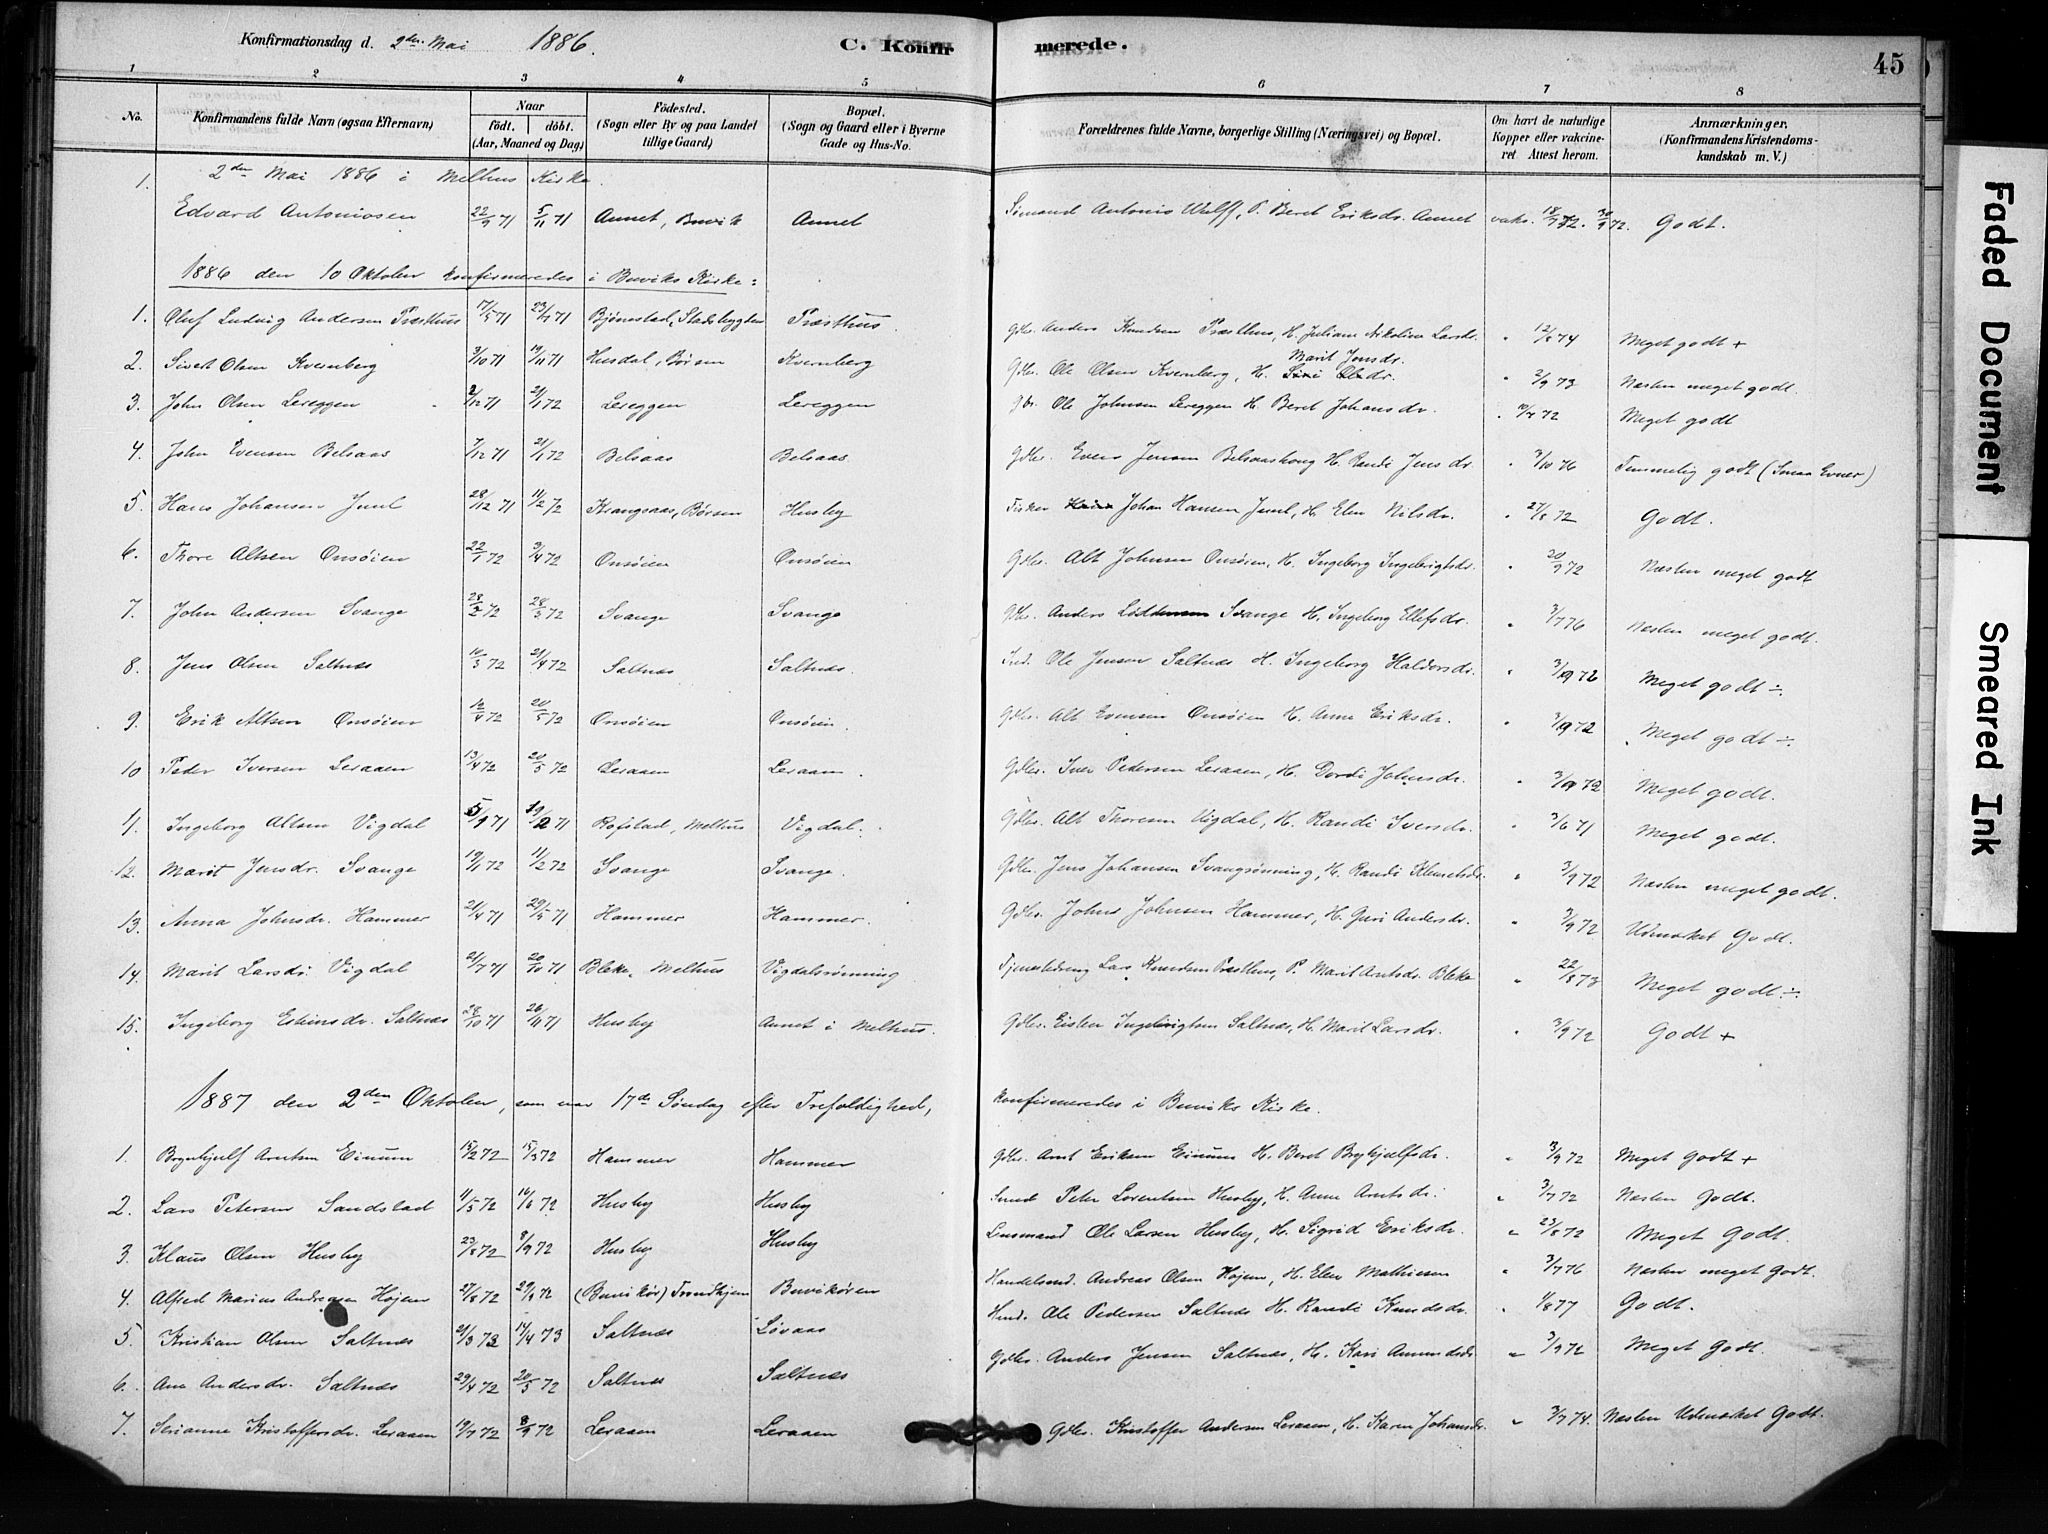 Konfirmationsdag d. 2den Mai 1886. C. Konfirmerede. 45
1 2 3 4 5 6 7 8
No. Konfirmandens fulde Navn (ogsaa Efternavn) Naar født. døbt. (Aar, Maaned og Dag) Fødested. (Sogn eller By og paa Landet tillige Gaard) Bopæl. (Sogn og Gaard eller i Byerne Gade og Hus-No. Forældrenes fulde Navne, borgerlige Stilling (Næringsvei) og Bopæl. Om havt de naturlige Kopper eller vakcineret Attest herom. Anmærkninger. (Konfirmandens Kristendomskundskab m. V.)
2den Mai 1886 i Melhus Kirke.
1. Edvard Antoniosen 22/9 71 5/11 71 Annet, Buvik Annet Sømand Antonio Wulff, P. Beret Eriksdr. Annet vaks. 30/9 72. Godt.
1886 den 10 Oktober konfirmeredes i Buviks Kirke:
1. Oluf Ludvig Andersen Præsthus 17/5 71 23/7 71 Bjønestad, Stadsbygden Præsthus. Gdbr. Anders Knudsen Præsthus, H. Juliane Nikoline Larsdr. " 12/8 74 Meget godt +
2. Sivert Olsen Kvernberg 3/10 71 19/11 71 Husdal, Børsen Kvernberg Gdbr. Ole Olsen Kvernberg, H. Marit Jonsdr. " 2/9 73 Næsten meget godt.
3. John Olsen Lereggen 2/12 71 21/1 72 Lereggen Lereggen Gbr. Ole Johnsen Lereggen H. Beret Johansdr. " 10/4 72 Meget godt
4. John Evensen Belsaas 7/12 71 21/1 72 Belsaas Belsaas Gdbr. Even Jensen Belsaashaug H. Randi Jensdr. " 3/10 76 Temmelig godt (Smaa Evner)
5. Hans Johansen Juul 28/12 71 11/2 72 Krangsaas, Børsen Husby Fisker Johan Hansen Juul, H. Elen Nilsdr. " 27/8 72 Godt.
6. Thore Altsen Onsøien 22/1 72 3/4 72 Onsøien Onsøien Gdbr. Alt Johnsen Onsøien, H. Ingeborg Ingebrigtsdr. " 20/9 72 Næsten meget godt
7. John Andersen Svange 28/2 72 28/3 72 Svange Svange Gdbr. Anders Svange H. Ingeborg Ellefsdr. " 3/7 76 Næsten meget godt.
8. Jens Olsen Saltnæs 16/3 72 21/4 72 Saltnæs Saltnæs. Ole Jensen Saltnæs H. Ingeborg Haldorsdr. " 3/9 72 Meget godt ÷
9. Erik Altsen Onsøien 12/4 72 20/5 72 Onsøien Onsøien. Gdbr. Alt Evensen Onsøien H. Anne Eriksdr. " 3/9 72 Meget godt ÷.
10 Peder Iversen Leraaen 13/4 72 20/5 72 Leraaen Leraaen. Gdbr. Iver Pedersen Leraaen, H. Dordi Johnsdr. " 3/9 72 Meget godt.
11. Ingeborg Altsen Vigdal 5/1 71 19/2 71 Rofstad, Melhus Vigdal. Gdbr. Alt Thoresen Vigdal, H. Randi Iversdr. " 3/6 71 Meget godt.
12. Marit Jensdr. Svange 19/1 72 11/2 72 Svange Svange. Gdbr. Jens Johansen Svangrønning, H. Randi Klemetsdr. " 3/9 72 Næsten meget godt.
13. Anna Johnsdr. Hammer 21/4 71 29/5 71 Hammer Hammer. Gdbr. John Johnsen Hammer, H. Guri Andersdr. " 3/9 72 Udmærket Godt.
14. Marit Larsdr. Vigdal 21/7 71 20/10 71 Bleke, Melhus Vigdalsrønning Tjenestedreng Lars Knudsen Præsthus, P. Marit Arntsdr. Bleke " 22/8 73 Meget godt ÷.
15. Ingeborg Estensdr. Saltnæs 28/10 71 26/11 71 Husby Annet i Melhus. Gdbr. Esten Ingebrigtsen Saltnæs, H. Marit Larsdr. " 3/9 72 Godt +
1887 den 2den Oktober, som var 17de Søndag efter Trefoldighed, konfirmeredes i Buviks Kirke.
1. Brynhjulf Arntsen Einum 15/2 72 15/3 72 Hammer Hammer Gdbr. Arnt Eriksen Einum H. Beret Brynhjulfsdr. " 3/9 72 Meget Godt +
2. Lars Petersen Sandstad 11/5 72 16/6 72 Husby Husby Smed Peter Lorentsen Husby, H. Anne Arntsdr. " 3/7 72 Næsten Godt.
3. Klaus Olsen Husby 23/8 72 8/9 72 Husby Husby Lensmand Ole Larsen Husby, H. Sigrid Eriksdr. " 23/8 72 Meget Godt.
4. Alfred Marius Andreasen Højem 27/8 72 29/9 72 (Buvikør) Trondhjem Buvikøren Handelsmd. Andreas Olsen Højem, H. Elen Mathiesen " 3/7 76 Næsten meget Godt.
5 Kristian Olsen Saltnæs 21/3 73 14/4 73 Saltnæs Løvaas Husmd. Ole Pedersen Saltnæs H. Randi Knudsdr. " 1/8 77 Godt.
6. Ane Andersdr. Saltnæs 29/4 72 20/5 72 Saltnæs Saltnæs Gdbr. Anders Jensen Saltnæs, H. Kari Amundsdr " 3/9 72 Meget Godt.
7. Serianne Kristoffersdr. Leraaen 19/7 72 8/9 72 Leraaen Leraaen Gdbr. Kristoffer Andersen Leraaen, H. Karen Johansdr. " 3/7 74. Næsten Udmærket Godt.
Faded Document
Smeared Ink